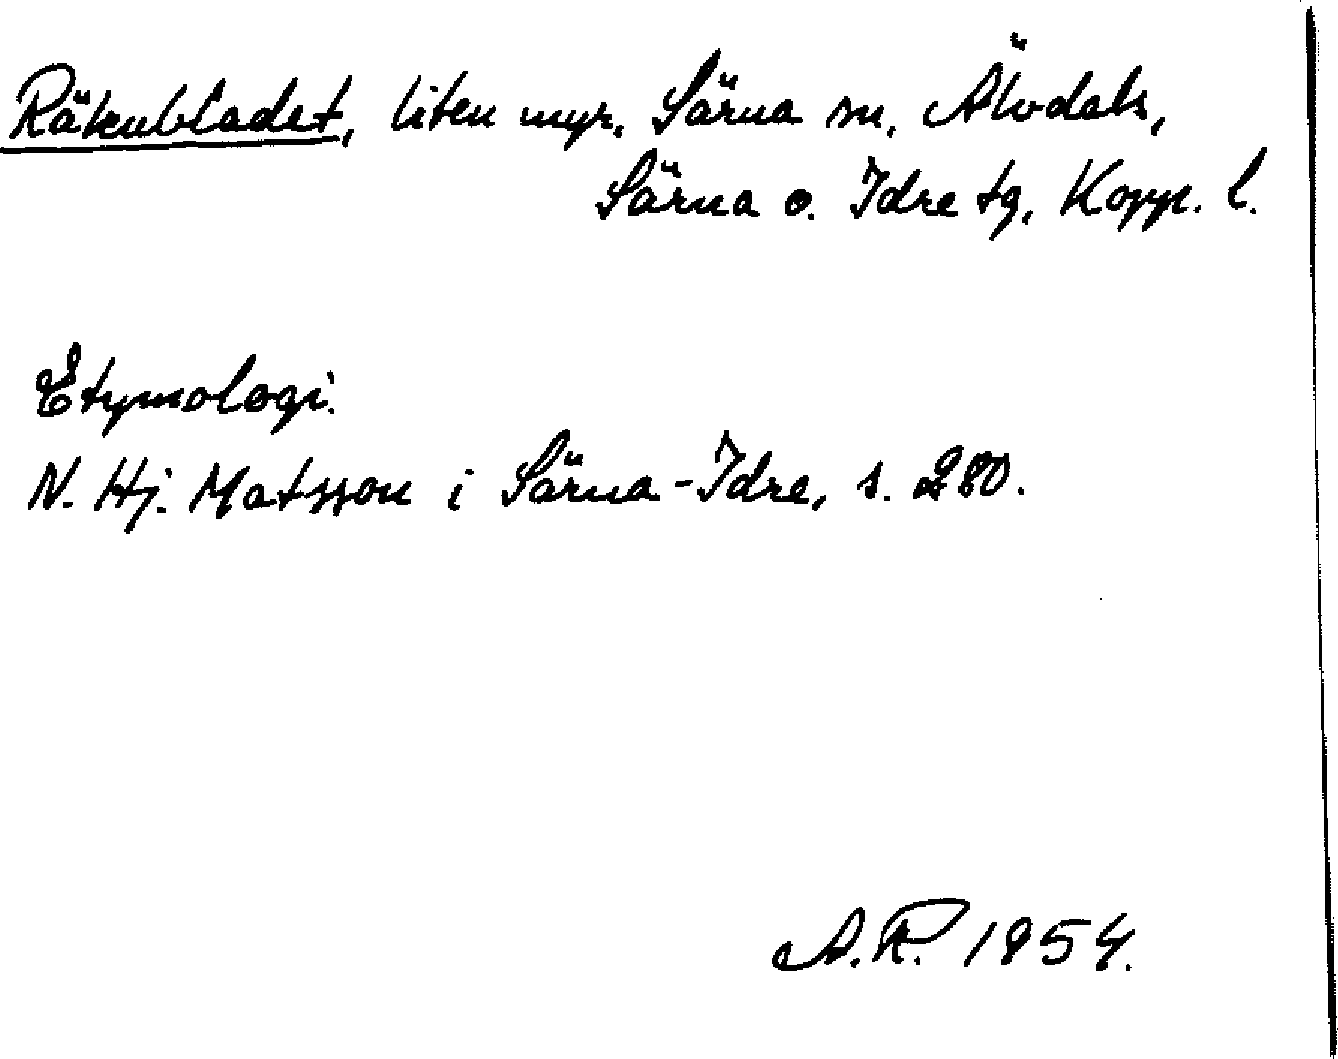 Räkubladet, liten myr, Särna sn, Älvdals,
Särna o. Idre tg, Kopp. l.
Etymologi.
N. Hj. Matsson i Särna-Idre, s. 280.
A.R. 1954.